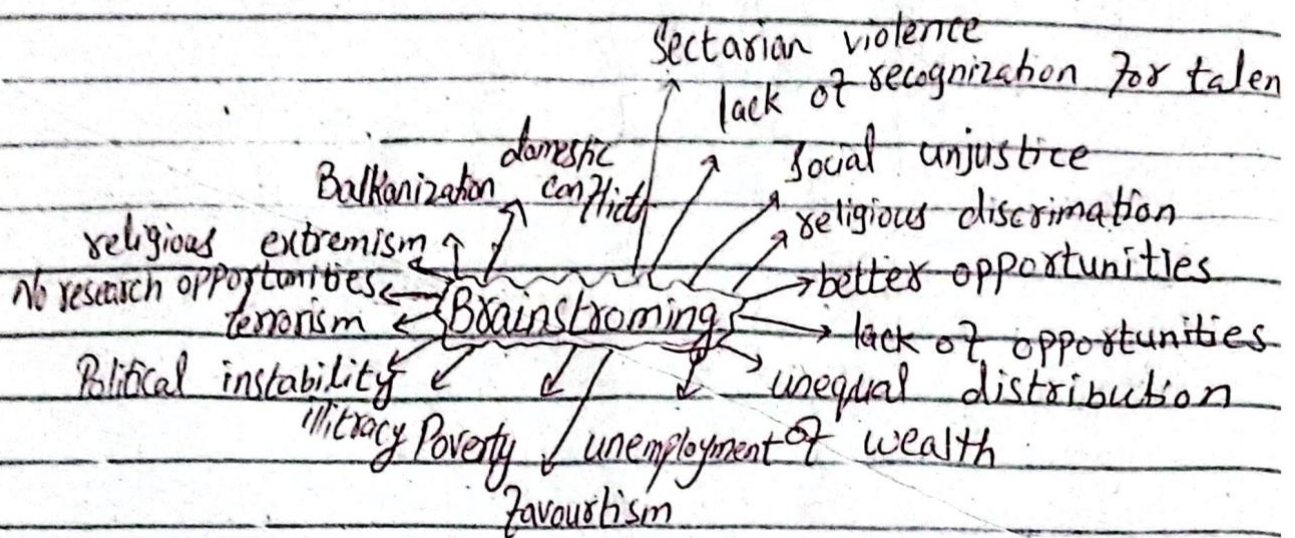 Sectarian violence
lack of recognization for talen
domestic
conflicts
Balkanization
Social unjustice
religious discrimation
religious extremism
better opportunities
No research opportunities
Brainstroming
terrorism
lack of opportunities
Political instability
unequal distribution
of wealth
illitracy
Poverty
unemployment
favourtism